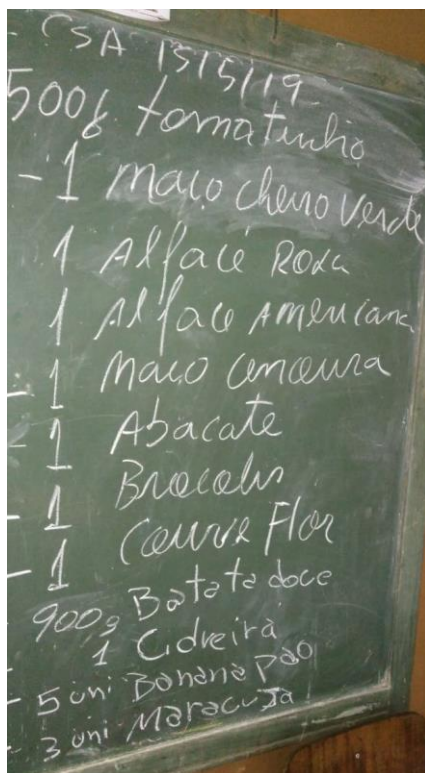 - CSA 15/5/19
500g tomatinho
- 1 maço cheiro verde
1 Alface Roxa
1 Alface Americana
- 1 maço cenoura
- 1 Abacate
- 1 Brocolis
- 1 Couve Flor
- 900g Batata doce
- 1 Cidreira
- 5 uni Banana pao
- 3 uni Maracuja